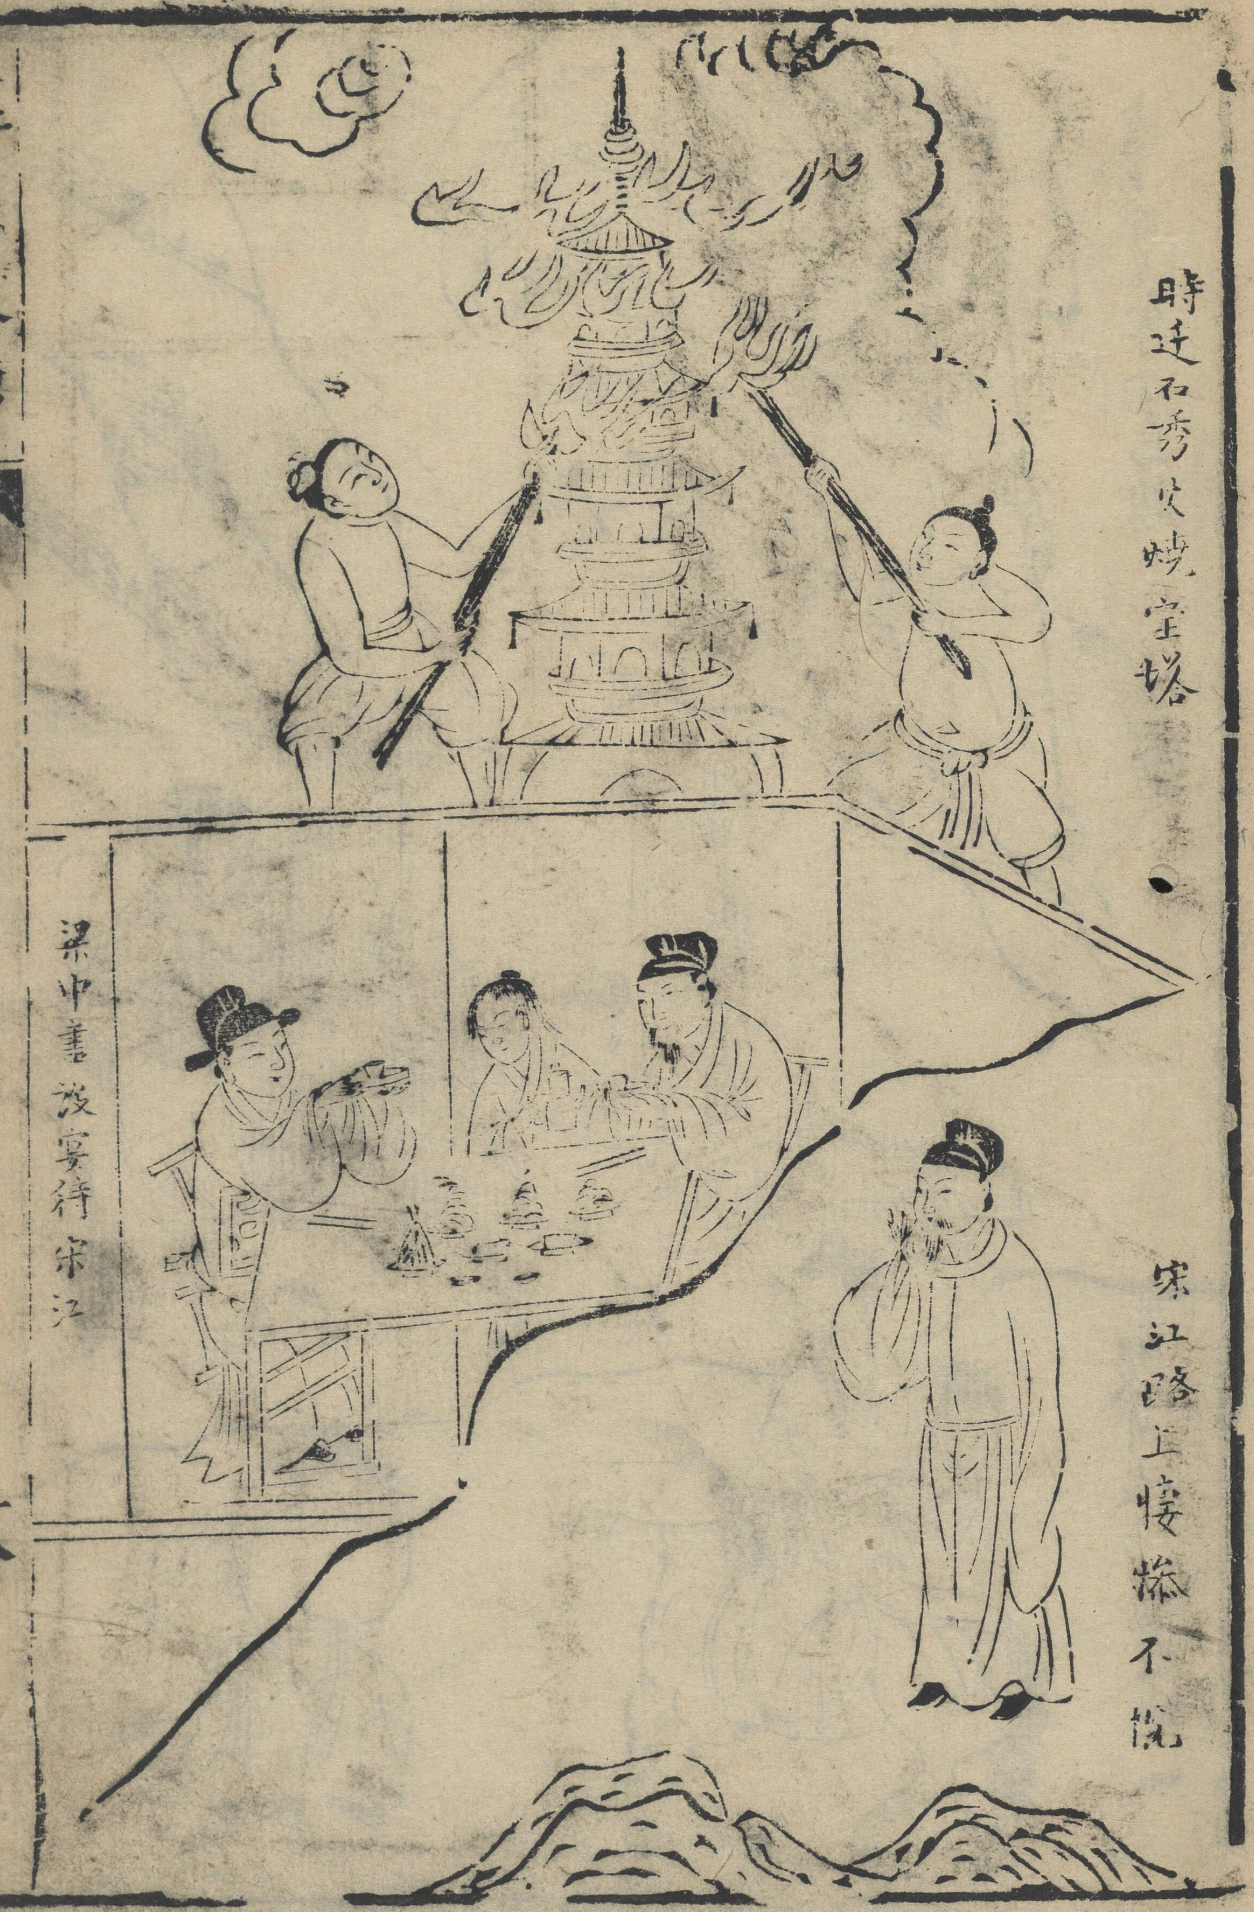 時迁石秀火燒宝塔
宋江路上悽慘不悅
梁中書設宴待宋江